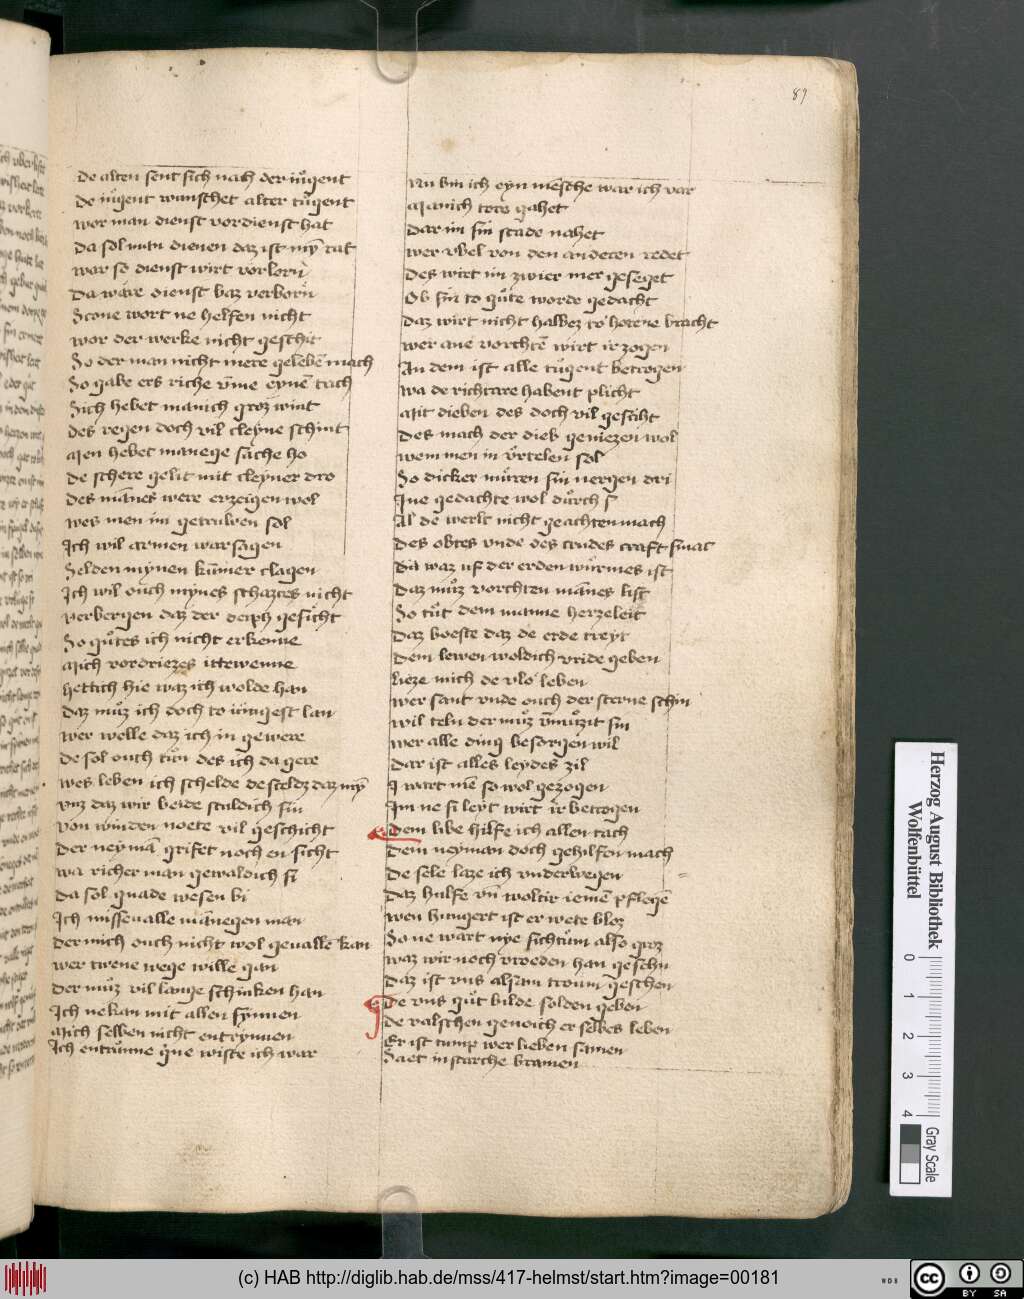 89
De alten sent sich nach der iůgent
De iůgent wunschet alter tůgent
wor man dienst vordienst hat
Da sol mītn dienen daz ist mȳ rat
war so dienst wirt vorlorn
Da ware dienst baz verborn
Scone wort ne helfen nicht
wor der werke nicht geschit
So der man nicht mere gelebēn mach
So gabe ers riche vm̄e eynē tach
Sich hebet manich groz wint
Des regen doch vil cleyne schint
Men hebet manege sache ho
De schere gelit mit cleyner dro
Des mānes were erzeigen wol
wes men im getruwen sol
Ich wil armen warsagen
Selden mynen kum̄er clagen
Ich wil ouch mynes schatzes nicht
verbergen daz der deiph gesicht
So gůtes ich nicht erkenne
Mich vordriezes ittewenne
Hettich hie waz ich wolde han
Daz můz ich doch to iungest lan
wer welle daz ich in gewere
De sol ouch tůn des ich da gere
wes leben ich schelde de sceldz daz mȳ
vnz daz wir beide sculdich sin
von winden noete vil geschicht
Der neymā grifet noch en sicht
wa richer man gewaldich si
Da sol gnade wesen bi
Ich misseualle mānegen man
Der mich ouch nicht wol geualle kan
wer twene wege wille gan
Der můz vil lange schinken han
Ich ne kan mit allen synnen
Mich selben nicht entrynnen
Ich entrůnne gne wiste ich war
Nu bin ich eyn mēsche war ich var
Manich tore gahet
Dar im sin scade nahet
wer vbel von den anderen redet
Des wirt im zwier mer geseget
Ob sin to gůte worde gedacht
Daz wirt nicht halbez to horene bracht
wer ane vorchtē wirt irzogen
An dem ist alle tůgent betrogen
wa de richtere habent plicht
Mit dieben des doch vil geschiht
Des mach der dieb geniezen wol
wem men in vrtelen sol
So dicker můren sin nergen dri
Ine gedachte wol důrch s
Al de werlt nicht geachten mach
Des obtes vnde des crudes craft smac
Da waz uf der erden wůrmes ist
Daz můz vorchten mānes list
So tůt dem manne herzeleit
Daz boeste daz de erde treyt
Dem lewen woldich vride geben
lieze mich de vlo leben
wer sant vnde ouch der sterne schin
wil teln der můz vnmůzit sin
wer alle ding besorgen wil
Dar ist alles leydes zil
I wart mē so wol gezogen
Im ne si leyt wirt ir betrogen
Dem libe hilfe ich allen tach
Dem neyman doch gehilfen mach
De sele laze ich vnderwegen
Daz hulfe vn̄ woltir iemē pflegē
wen hungert ist er wete bloz
So ne wart nye sichtům also groz
waz wir noch vroeden han gesehn
Daz ist vns alsam troum geschen
De vns gůt bilde solden geben
De valschen genoich er selbes leben
Er ist tump wer lieben samen
Saet in starche bramen
Herzog August Bibliothek
Wolfenbüttel
0 1 2 3 4
Gray Scale
(c) HAB http://diglib.hab.de/mss/417-helmst/start.htm?image=00181
WDB
cc BY SA